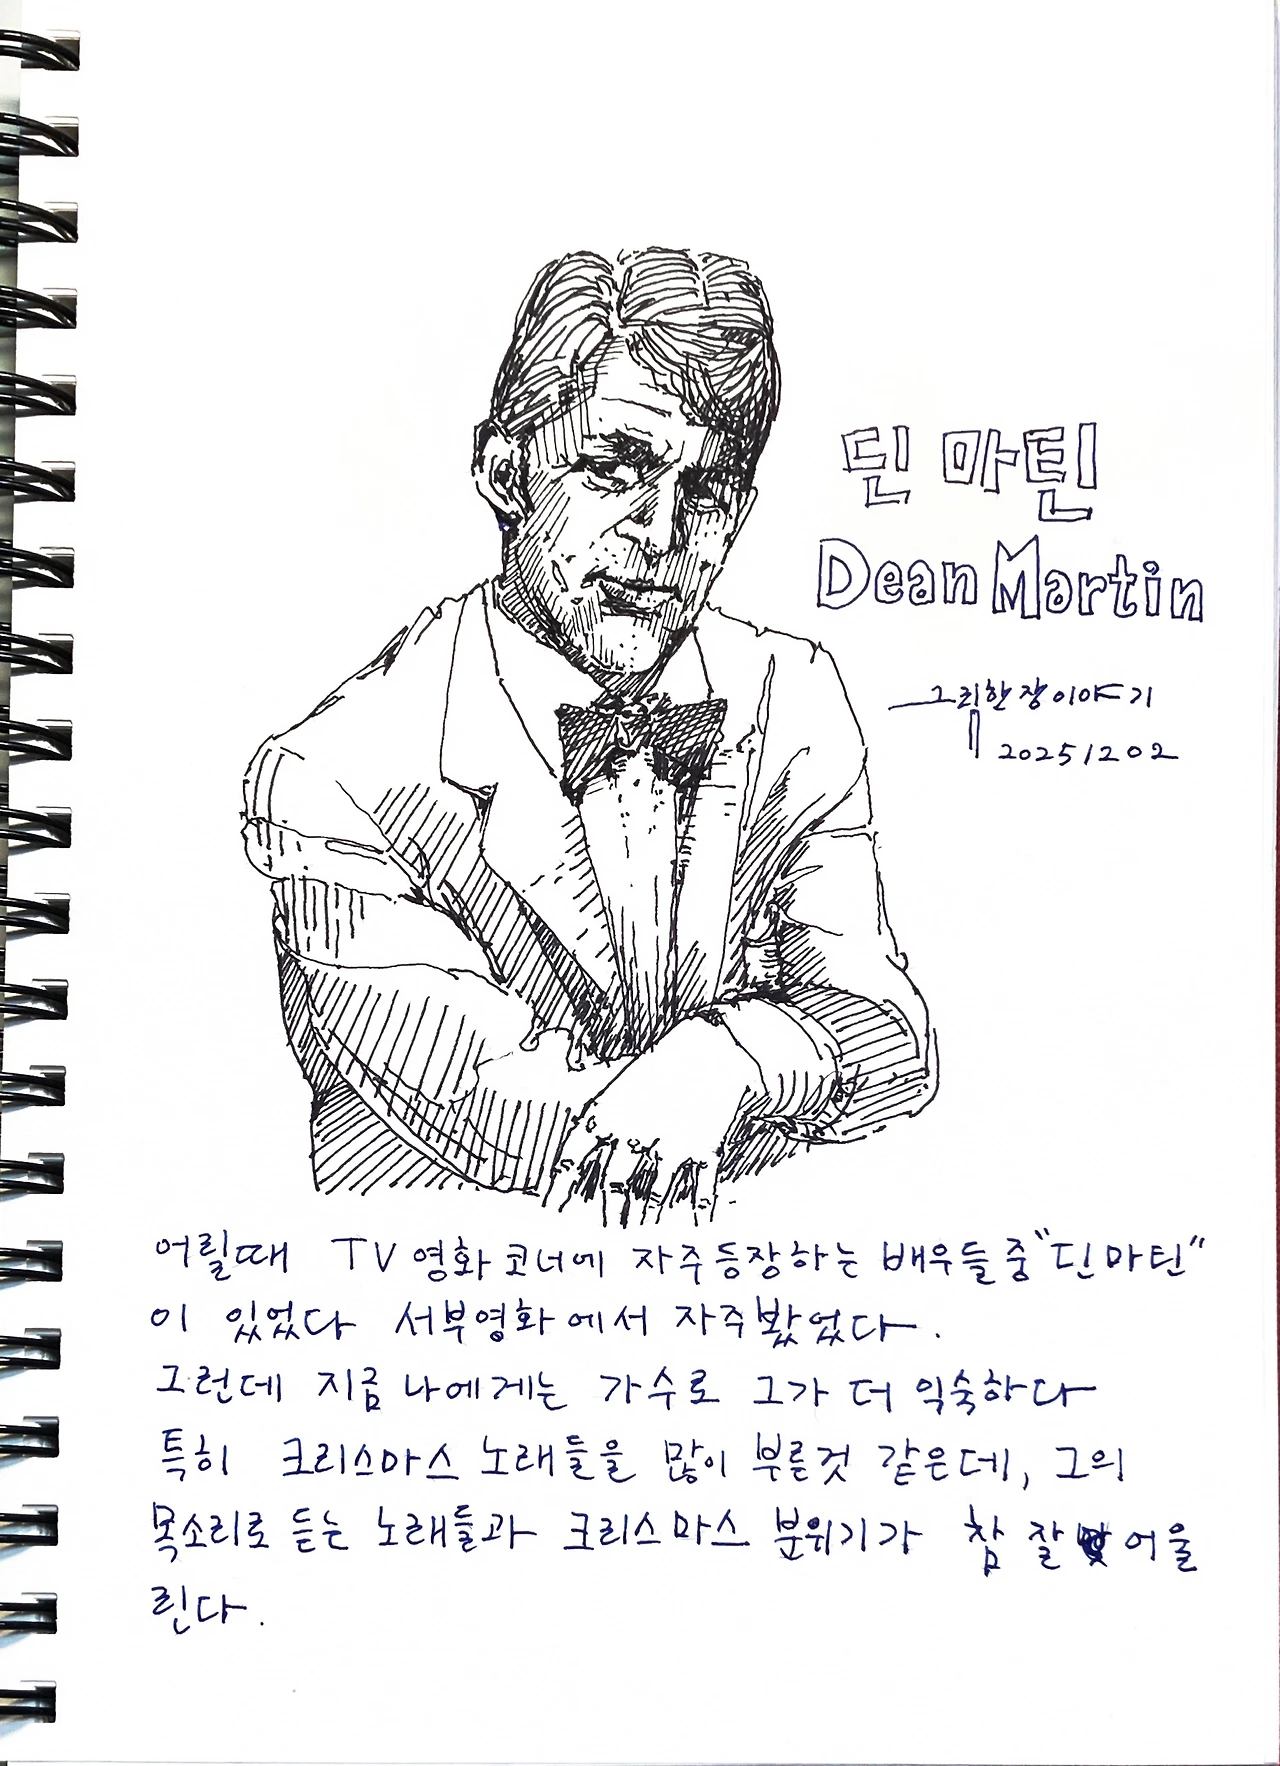 딘 마틴
Dean Martin
그림한장이야기
20251202
어릴때 TV 영화 코너에 자주등장하는 배우들 중 "딘 마틴"
이 있었다 서부영화에서 자주봤었다.
그런데 지금 나에게는 가수로 그가 더 익숙하다
특히 크리스마스 노래들을 많이 부른것 같은데, 그의
목소리로 듣는 노래들과 크리스마스 분위기가 참 잘 어울
린다.